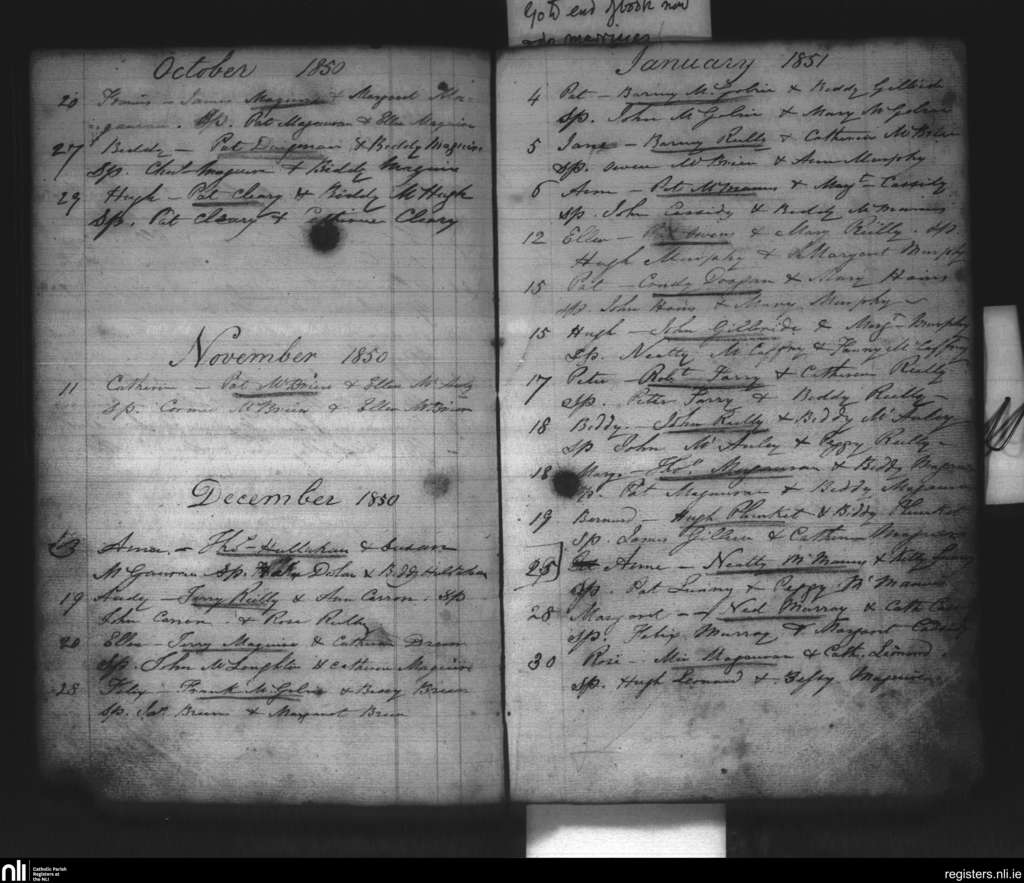 Go to end of book now
marriages
October 1850
20 Francis - James Maguire & Margaret
Sp. Pat Magauran & Ellen Maguire
27 Biddy - Pat & Biddy Maguire
Sp. Chas Magauran & Biddy Maguire
29 Hugh - Pat Cleary & Biddy McHugh
Sp. Pat Cleary & Catherine Cleary
November 1850
11 Catherine - Pat McBrien & Ellen
Sp. Cormic McBrien & Ellen McBrien
December 1850
Anne - Thos. Hallahan & Susan
McGauran Sp. Dolan & Biddy Hallahan
19 Andy - Terry Reilly & Ann Carron. Sp
John Carron & Rose Reilly
20 Ellen - Terry Maguire & Catherine
Sp. John McLoughlin & Catherine Maguire
28 Felix - Frank & Bessy Breen
Sp. Jas. Breen & Margaret Breen
January 1851
4 Pat - Barney McGolric & Biddy Gilbride
Sp. John McGolric & Mary McGolric
5 Jane - Barney Reilly & Catherine McBrien
Sp. Owen McBrien & Ann Murphy
6 Anne - Pat McManus & Margt. Cassidy
Sp. John Cassidy & Biddy McManus
12 Ellen - Pat Owens & Mary Reilly. Sp.
Hugh Murphy & Margaret Murphy
15 Pat - Condy & Mary
Sp. John & Mary Murphy
15 Hugh - John Gilbride & Margt. Murphy
Sp. Neatty McCaffry & Fanny McCaffry
17 Peter - Robt. Farry & Catherine Reilly
Sp. Petter Farry & Biddy Reilly
18 Biddy - John Reilly & Biddy McAuley
Sp John McAuley & Peggy Reilly
18 Margt - Thos. Magauran & Biddy
Sp. Pat Magauran & Biddy Magauran
19 Bernard - Hugh Plunket & Biddy Plunket
Sp. James & Catherine
25 Anne - Neatty McManus & Kitty Lunny
Sp. Pat Lunny & Peggy McManus
28 Margaret - Ned Murray & Cath
Sp. Felix Murray & Margaret Cassidy
30 Rose - Magauran & Cath. Leonard
Sp. Hugh Leonard & Magauran
nli Catholic Parish
Registers at
the NLI
registers.nli.ie